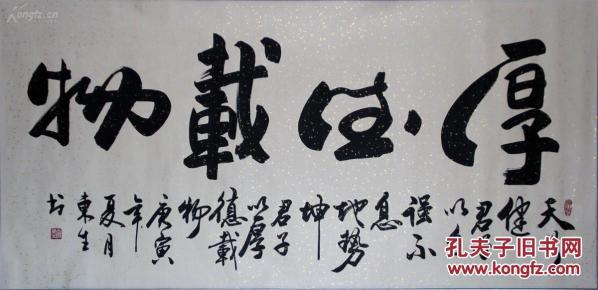 kongfz.cn
厚德載物
天行
健
君子
以自
强不
息
地勢
坤
君子
以厚
德載
物
庚寅
年
夏月
東生
书
孔夫子旧书网
www.kongfz.com